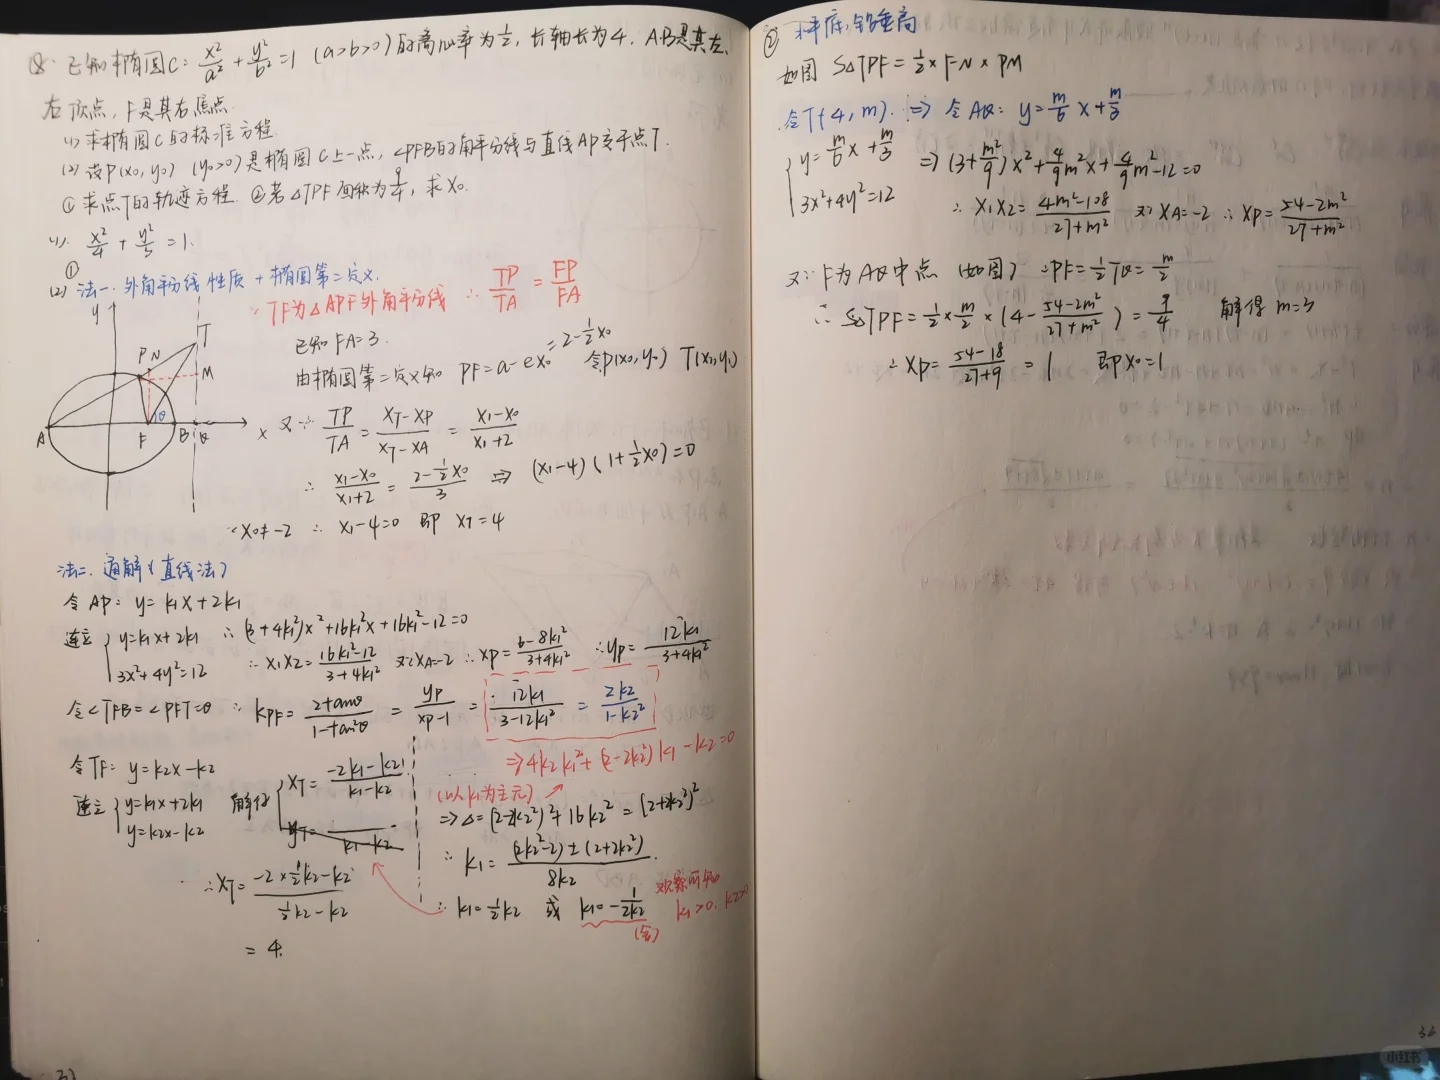 Q. 已知椭圆C: x²/a² + y²/b² = 1 (a>b>0) 的离心率为1/2, 长轴长为4. A.B是其左、
右顶点, F是其右焦点.
(1) 求椭圆C的标准方程.
(2) 设P(x₀, y₀) (y₀>0) 是椭圆C上一点, ∠PFB的角平分线与直线AP交于点T.
① 求点T的轨迹方程. ②若△TPF面积为9/4, 求x₀.
(1). x²/4 + y²/3 = 1.
①
(2) 法一. 外角平分线性质 + 椭圆第二定义.
∵ TF为△APF外角平分线 ∴ TP/TA = FP/FA
已知 FA=3.
由椭圆第二定义知 PF=a-ex₀ = 2-1/2x₀ 令P(x₀, y₀) T(x₁, y₁)
y
T
P N
M
θ
A F B Q x
又∵ TP/TA = (xT-xP)/(xT-xA) = (x₁-x₀)/(x₁+2)
∴ (x₁-x₀)/(x₁+2) = (2-1/2x₀)/3 ⇒ (x₁-4)(1+1/2x₀)=0
∵x₀≠-2 ∴ x₁-4=0 即 xT=4
法二. 通解(直线法)
令AP: y=k₁x+2k₁
联立 { y=k₁x+2k₁ ∴ (3+4k₁²)x²+16k₁²x+16k₁²-12=0
3x²+4y²=12 ∴ x₁x₂=(16k₁²-12)/(3+4k₁²) 又∵xA=-2 ∴xP=(6-8k₁²)/(3+4k₁²) ∴yP=12k₁/(3+4k₁²)
令∠TFB=∠PFT=θ ∴ kPF=2tanθ/(1-tan²θ) = yP/(xP-1) = 12k₁/(3-12k₁²) = 2k₂/(1-k₂²)
⇒4k₂k₁²+(2-2k₂²)k₁-k₂=0
令TF: y=k₂x-k₂
联立 { y=k₁x+2k₁ 解得 { xT=(-2k₁-k₂)/(k₁-k₂)
y=k₂x-k₂ yT= /(k₁-k₂)
(以k₁为主元)
⇒△=(2-2k₂²)²+16k₂²=(2+2k₂²)²
∴ k₁=((2k₂²-2)±(2+2k₂²))/8k₂.
∴ k₁=1/2k₂ 或 k₁=-1/2k₂ k₁>0. k₂>0
(舍)
∴xT=(-2×1/2k₂-k₂)/(1/2k₂-k₂)
= 4.
② 水平底, 铅垂高
如图 S△TPF=1/2×FN×PM
令T(4, m). ⇒ 令AQ: y=m/6 x+m/3
{ y=m/6 x+m/3 ⇒ (3+m²/9)x²+4/9m²x+4/9m²-12=0
3x²+4y²=12 ∴ x₁x₂=(4m²-108)/(27+m²) 又∵xA=-2 ∴ xP=(54-2m²)/(27+m²)
又∵F为AQ中点 (如图) ∴PF=1/2TQ=m/2
∴ S△TPF=1/2×m/2×(4-(54-2m²)/(27+m²))=9/4 解得 m=3
∴xP=(54-18)/(27+9) = 1 即x₀=1
36
小红书